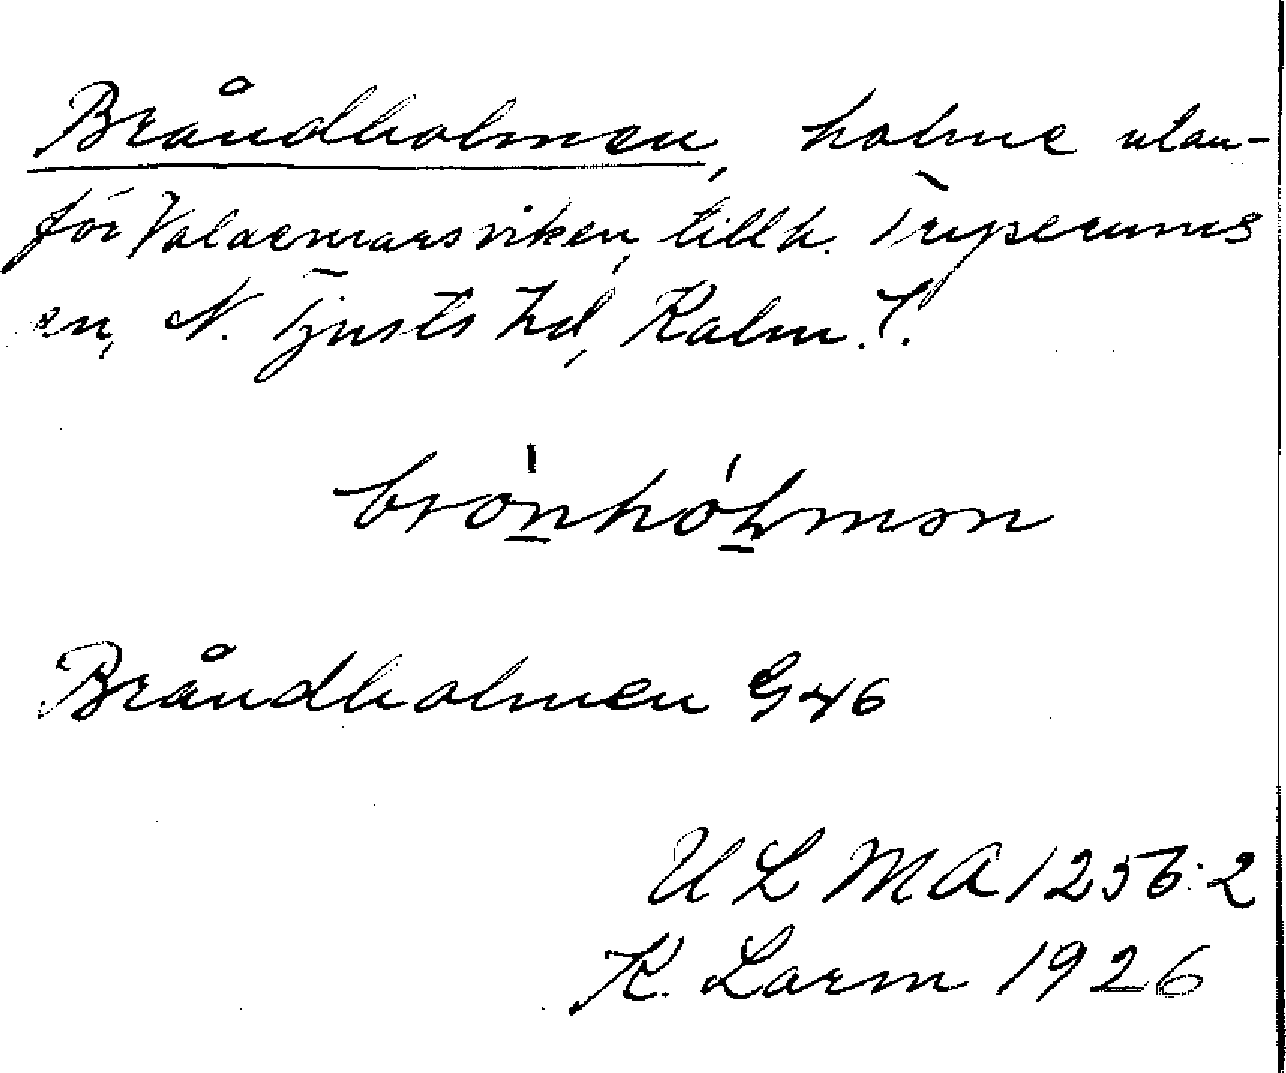 Bråndholmen, holme utan-
för Valdemarsviken, tillh. Tryserums
sn, N. Tjusts hd, Kalm. l.
brònhòlmən
Bråndholmen G46
ULMA 1256:2
K. Larm 1926